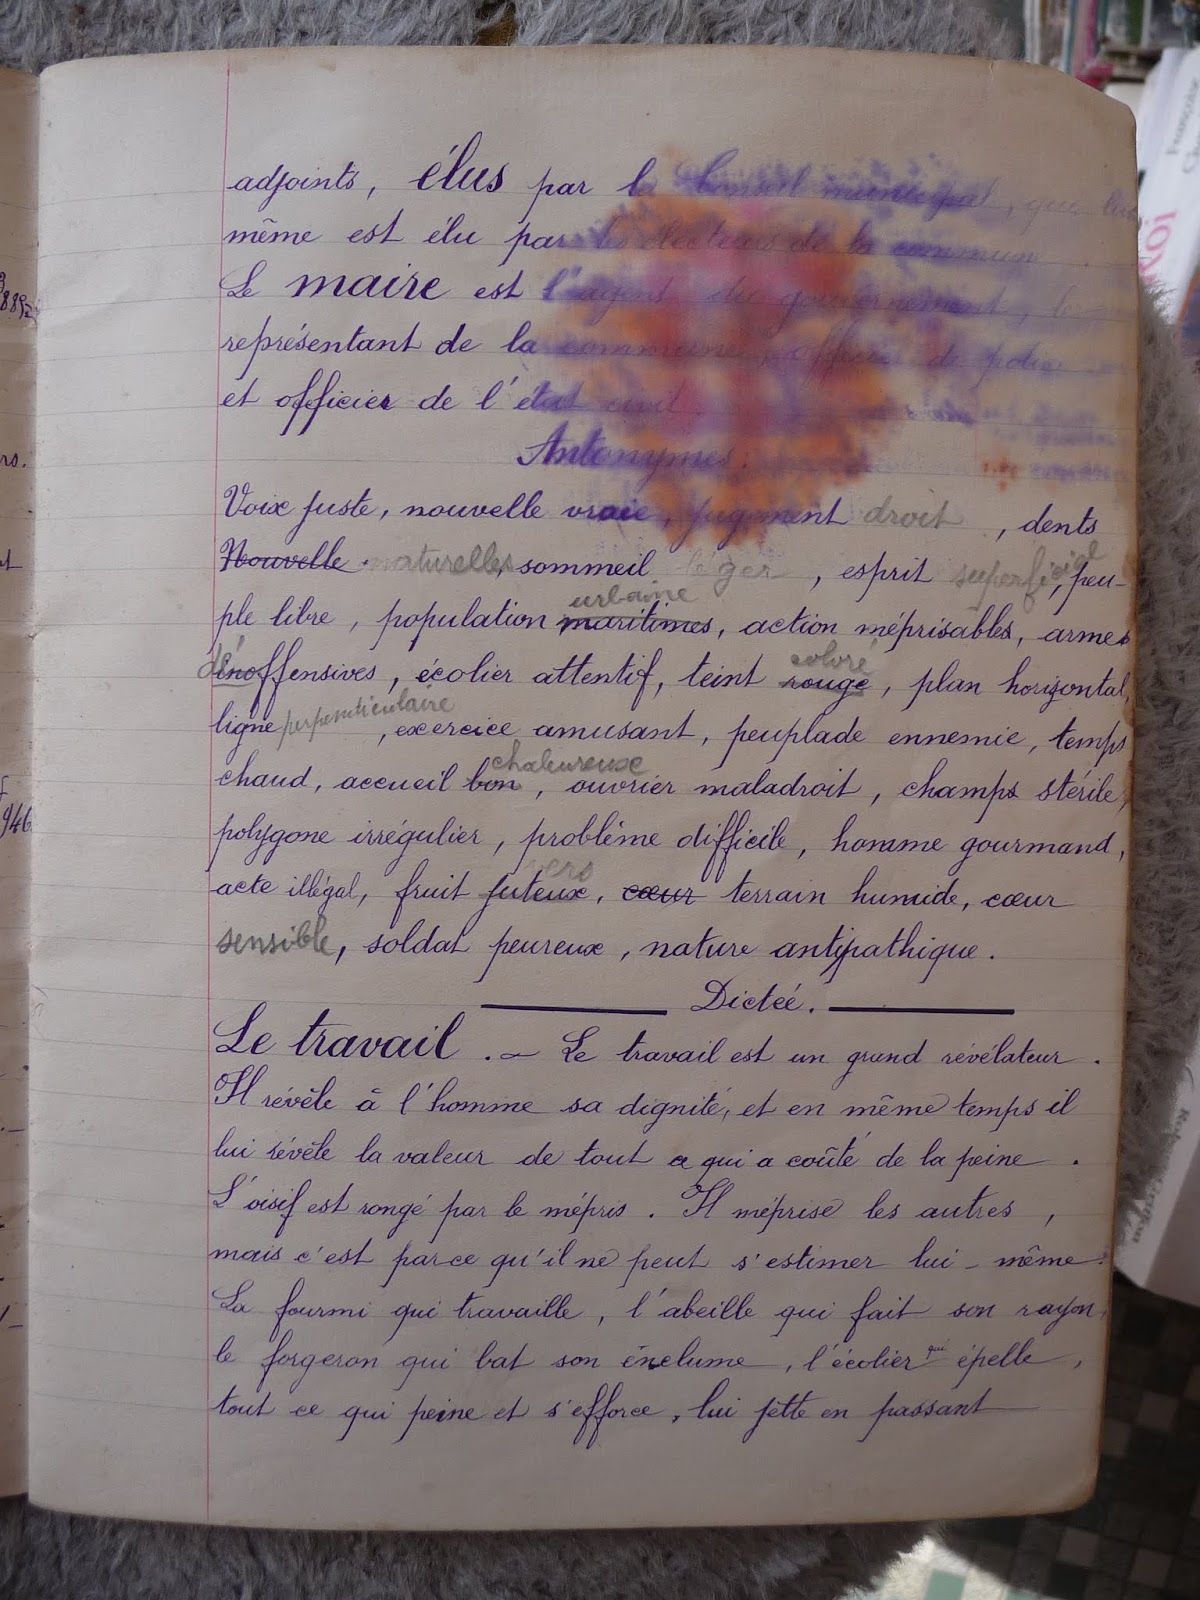 adjoints, élus par le Conseil municipal, qui lui
même est élu par les électeurs de la commun
Le maire est l'agent du gouvernement, le
représentant de la commune, officier de police
et officier de l'état civil.
Antonymes.
Voix juste, nouvelle vraie, jugement droit, dents
Nouvelle naturelles, sommeil léger, esprit superficiel, peu-
urbaine
ple libre, population maritimes, action méprisables, armes
coloré
dénoffensives, écolier attentif, teint rouge, plan horizontal,
ligne perpendiculaire, exercice amusant, peuplade ennemie, temps
chaleureuse
chaud, accueil bon, ouvrier maladroit, champs stérile,
polygone irrégulier, problême difficile, homme gourmand,
acte illégal, fruit juteux, cœur terrain humide, cœur
sensible, soldat peureux, nature antipathique.
Dicteé.
Le travail. - Le travail est un grand révélateur.
Il révèle à l'homme sa dignité, et en même temps il
lui révèle la valeur de tout ce qui a coûté de la peine.
L'oisif est rongé par le mépris. Il méprise les autres,
mais c'est parce qu'il ne peut s'estimer lui-même.
La fourmi qui travaille, l'abeille qui fait son rayon,
le forgeron qui bat son enclume, l'écolier qui épelle,
tout ce qui peine et s'efforce, lui jette en passant
889
rs.
946